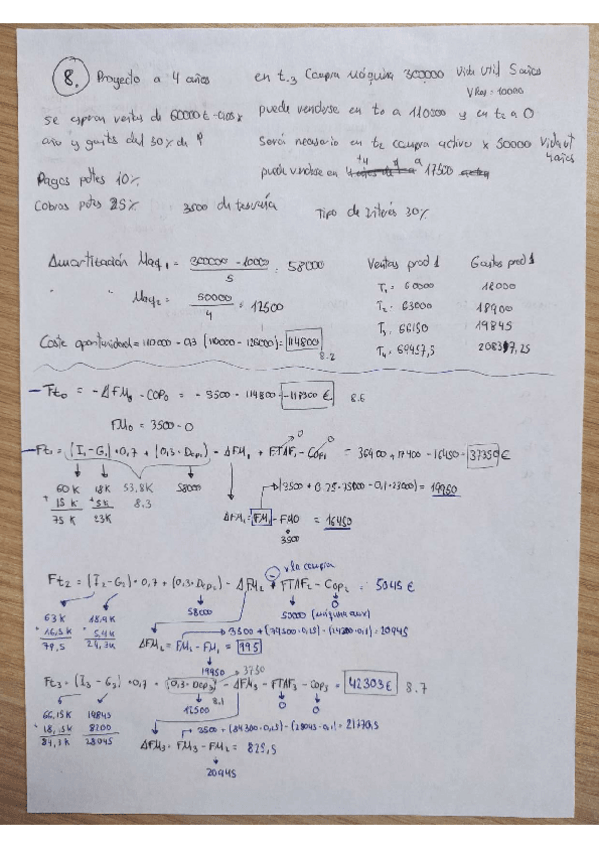 8. Proyecto a 4 años en t-3 Compra Máquina 300000 Vida Util 5 años
VRes = 10000
Se esperan ventas de 60000 € puede venderse en t0 a 110000 y en t2 a 0
año y gastos del 30% de Será necesario en t2 compra activo x 50000 Vida
4 años
Pagos ptes 10% puede venderse en 17500
Cobros ptes 25% 3500 de tesorería Tipo de 30%
Amortización Maq1 = (300000 - 10000)/5 = 58000 Ventas prod 1 Gastos prod 1
" " Maq2 = 50000/4 = 12500 T1 = 60000 18000
T2 = 63000 18900
T3 = 66150 19845
Coste oportunidad = 110000 - 0,3 (110000 - 126000) = 114800 T4 = 69457,5
8.2
- Ft0 = - ΔFM0 - COP0 = - 3500 - 114800 = -118300 € 8.6
FM0 = 3500 - 0
- Ft1 = (I1 - G1) · 0,7 + (0,3 · Dep1) - ΔFM1 + FTAF1 - Cop1 = 36400 + 17400 - 16450 = 37350 €
0 0
60 K 18K 53,8K 58000 (3500 + 0,25 · 75000 - 0,1 · 23000) = 19950
+ 15 K + 5K 8.3
75 K 23K ΔFM1 = FM1 - FM0 = 16450
3500
x la compra
Ft2 = (I2 - G2) · 0,7 + (0,3 · Dep2) - ΔFM2 - FTAF2 - Cop2 = 5045 €
58000 50000 (máquina aux) 0
63 K 18,9K 3500 + (79500 · 0,25) - (24300 · 0,1) = 20945
+ 16,5 K 5,4K ΔFM2 = FM2 - FM1 = 995
79,5 24,3K 19950
Ft3 = (I3 - G3) · 0,7 + (0,3 · Dep3) - ΔFM3 - FTAF3 - Cop3 = 42303 € 8.7
3750
12500 8.1 0 0
66,15K 19845
+ 18,15K 8200 3500 + (84300 · 0,25) - (28045 · 0,1) = 21770,5
84,3K 28045 ΔFM3 = FM3 - FM2 = 825,5
20945